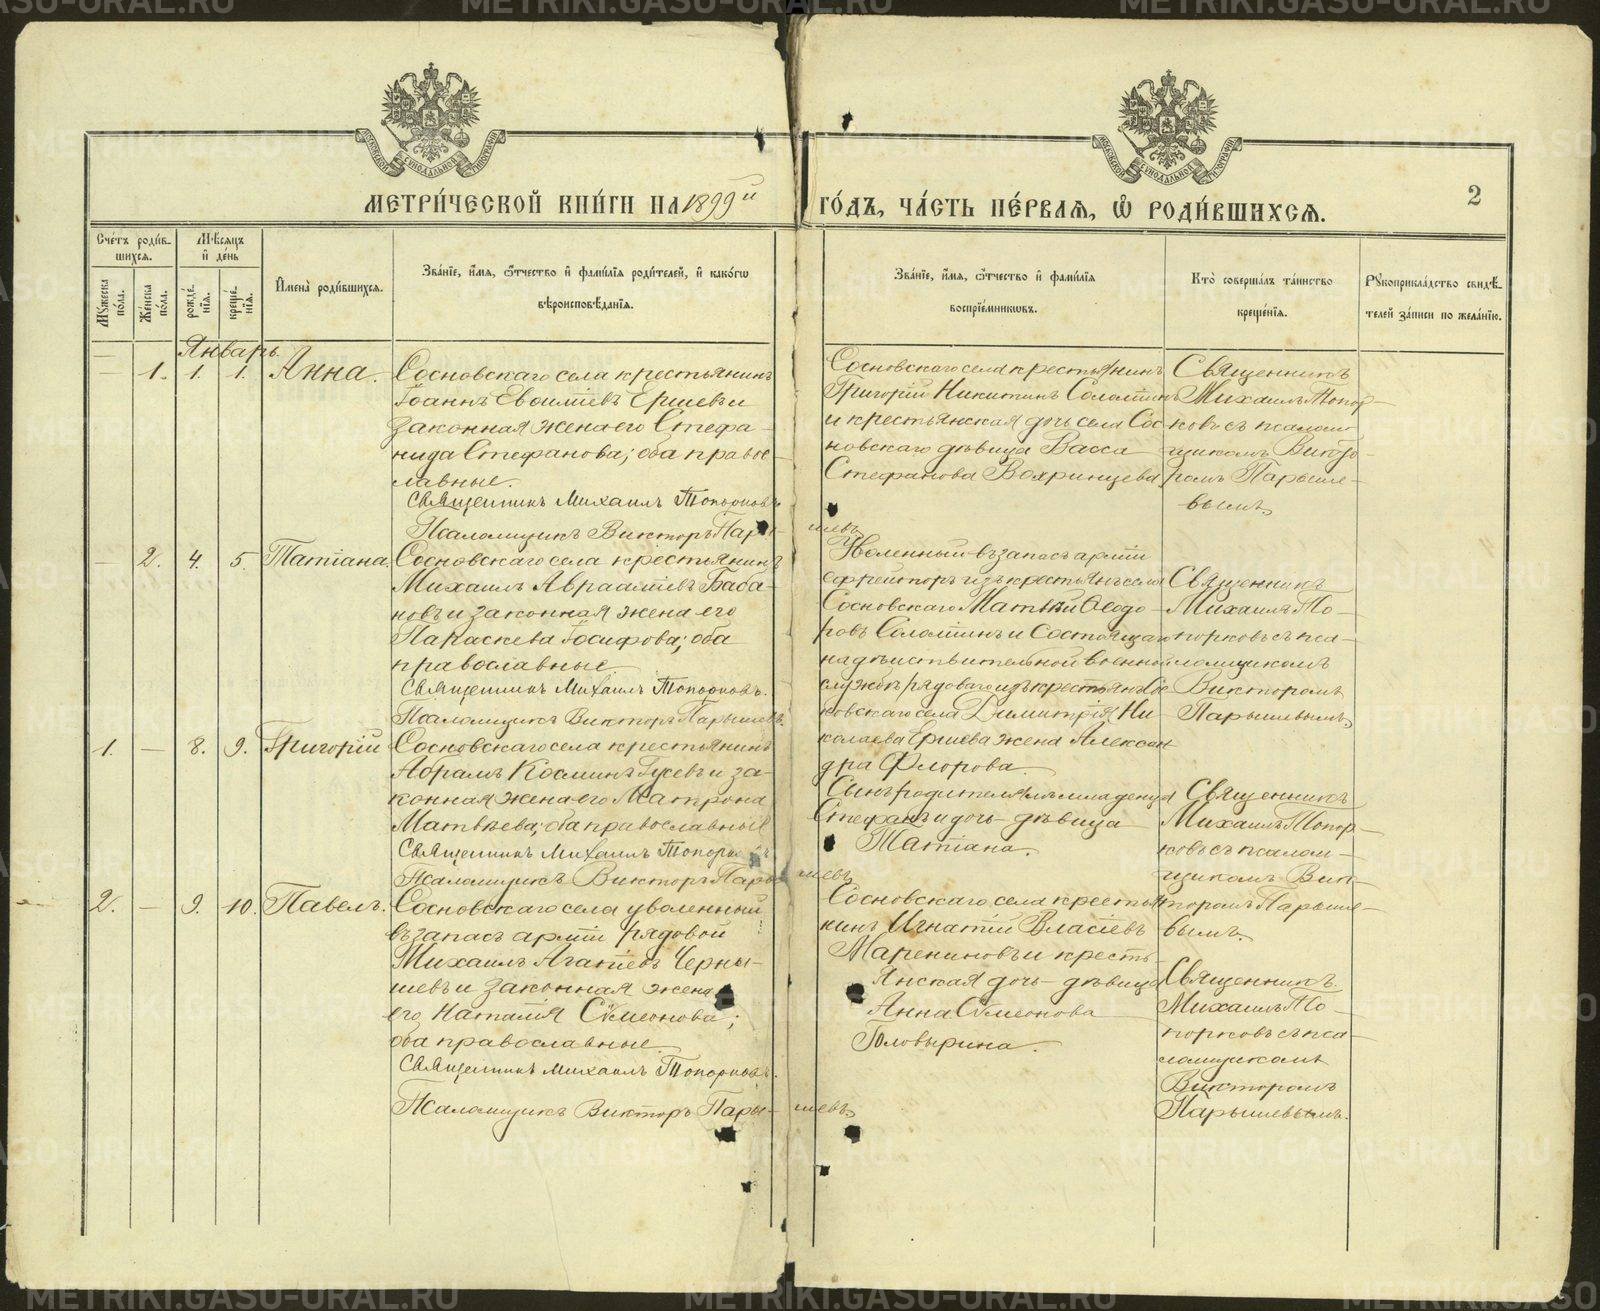 МЕТРИ́ЧЕСКОЙ КНИ́ГИ НА 1899й ГО́ДЪ, ЧА́СТЬ ПЕ́РВАЯ, Ѿ РОДИ́ВШИХСЯ.
2
Сче́тъ роди́вшихся.
Му́жеска по́ла.
Же́нска по́ла.
Мѣ́сяцъ и де́нь
рожде́нїя.
креще́нїя.
И҆мена̀ роди́вшихся.
Зва́нїе, и҆́мя, ѻ҆́тчество и҆ фами́лїя роди́телей, и҆ како́гѡ
вѣроисповѣ́данїя.
Зва́нїе, и҆́мя, ѻ҆́тчество и҆ фами́лїя
воспрїе́мникѡвъ.
Кто̀ соверша́лъ та́инство
креще́нїя.
Рꙋкоприкла́дство свидѣ́телей за́писи по жела́нїю.
Январь.
— 1. 1. 1. Анна.
Сосновскаго села крестьянинъ
Іоаннъ Евѳиміевъ Ершевъ и
законная жена его Стефа-
нида Стефанова; оба правос-
лавные.
Священникъ Михаилъ Топорковъ
Псаломщикъ Викторъ Пары-
шевъ
Сосновскаго села крестьянинъ
Григорій Никитинъ Соломинъ
и крестьянская дочь села Сос
новскаго дѣвица Васса
Стефанова Вояринцева
Священникъ
Михаилъ Топор-
ковъ съ псалом-
щикомъ Викто-
ромъ Парыше-
вымъ.
— 2. 4. 5. Татіана.
Сосновскаго села крестьянинъ
Михаилъ Авраамiевъ Баба-
новъ и законная жена его
Параскева Іосифова; оба
православные
Священникъ Михаилъ Топорковъ.
Псаломщикъ Викторъ Парышевъ.
Уволенный въ запасъ арміи
ефрейторъ изъ крестьянъ села
Сосновскаго Матвѣй Ѳеодо-
ровъ Соломинъ и состоящаго
на дѣйствительной военной
службѣ рядоваго изъ крестьянъ Сос
новскаго села Димитрія Ни-
колаева Ершева жена Алексан
дра Флорова.
Священникъ
Михаилъ То-
порковъ съ пса-
ломщикомъ
Викторомъ
Парышевымъ.
1. — 8. 9. Григорій
Сосновскаго села крестьянинъ
Абрамъ Космин Гусевъ и за-
конная жена его Матрона
Матвѣева; оба православные
Священникъ Михаилъ Топорковъ
Псаломщикъ Викторъ Пары
шевъ
Сынъ родителямъ младенца
Стефанъ и дочь дѣвица
Татіана.
Священникъ
Михаилъ Топор-
ковъ съ псалом-
щикомъ Вик-
торомъ Парыше-
вымъ.
2. — 9. 10. Павелъ.
Сосновскаго села уволенный
въ запасъ арміи рядовой
Михаилъ Агапіевъ Черны-
шевъ и законная жена
его Наталія Сѷмеонова;
оба православные.
Священникъ Михаилъ Топорковъ.
Псаломщикъ Викторъ Пары-
шевъ
Сосновскаго села крестья
нинъ Игнатій Власіевъ
Марениновъ и кресть-
янская дочь дѣвица
Анна Сѷмеонова
Головырина.
Священникъ
Михаилъ То-
порковъ съ пса-
ломщикомъ
Викторомъ
Парышевымъ.
METRIKI.GASO-URAL.RU